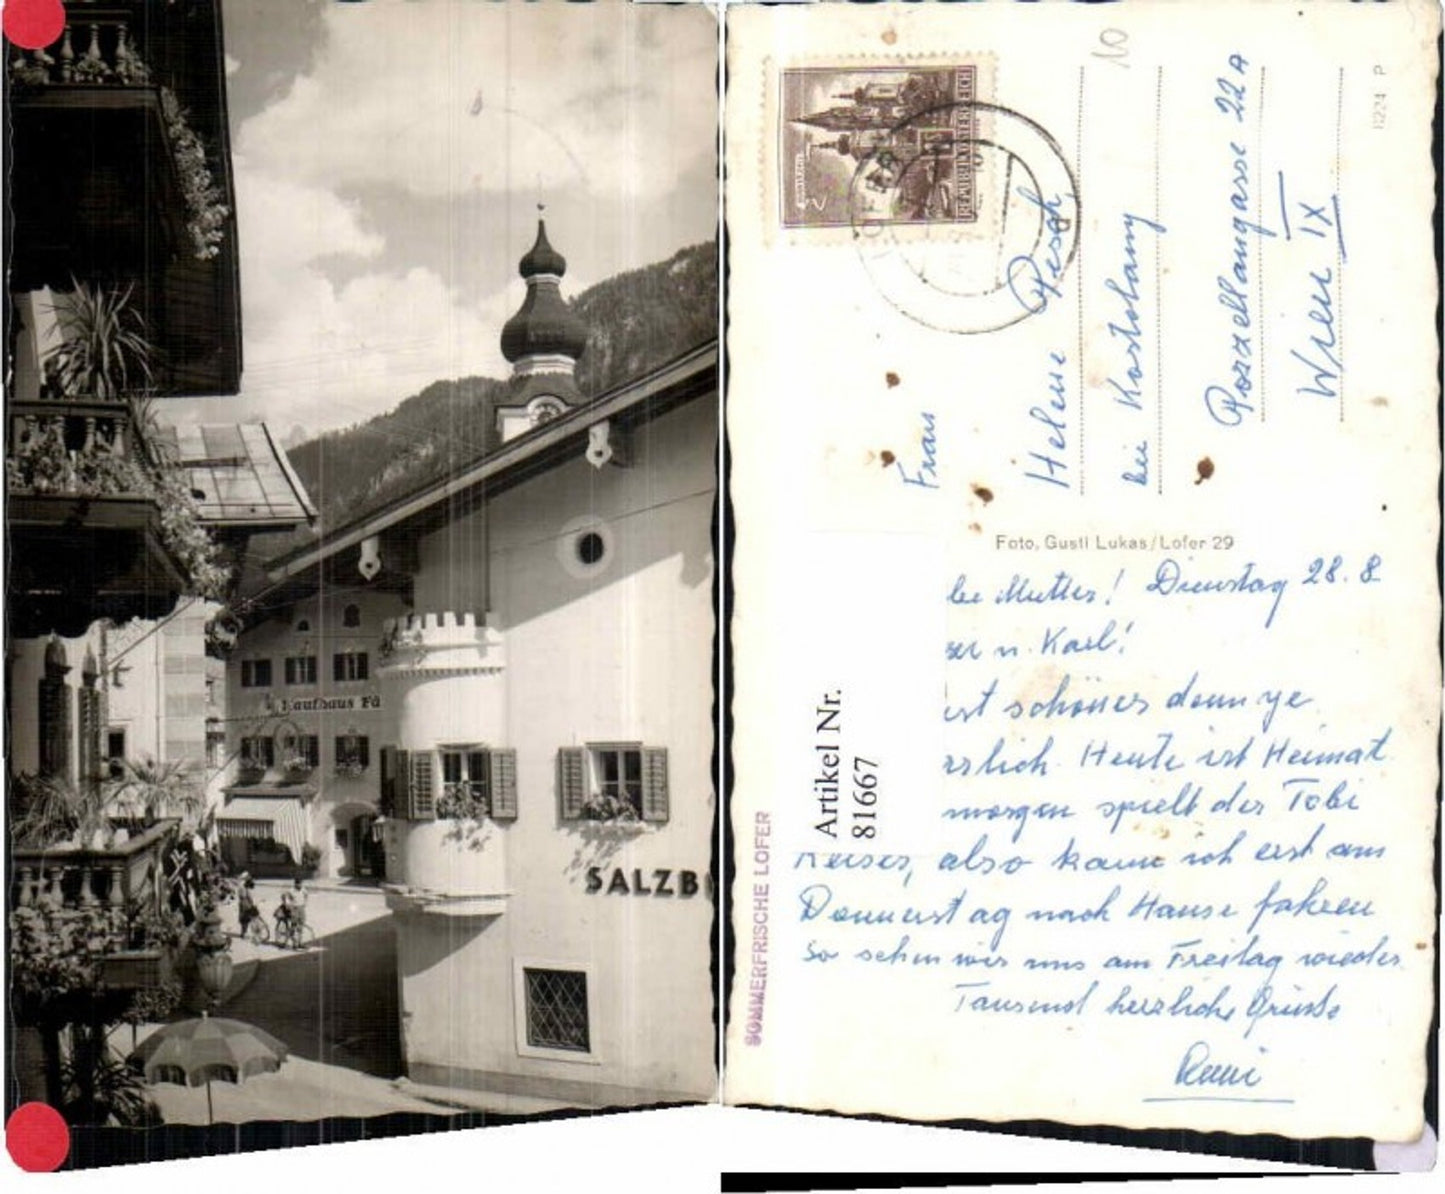 Kaufhaus Fä
SALZB
REPUBLIK ÖSTERREICH
10
Frau
Helene Pesch
bei
Porzellangasse 22A
Wien IX
11224 P
Foto, Gustl Lukas/Lofer 29
Artikel Nr.
81667
SOMMERFRISCHE LOFER
be Mutter! Dienstag 28.8
u. Karl!
ist schöner denn je
rzlich. Heute ist Heimat
morgen spielt der Tobi
Reiser, also kann ich erst am
Donnerstag nach Hause fahren
so sehen wir uns am Freitag wieder.
Tausend herzliche Grüsse